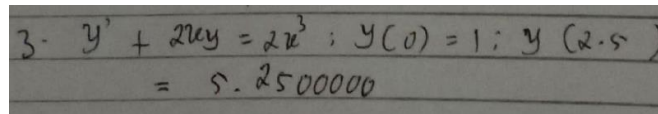 3. y' + 2xy = 2x³ ; y(0) = 1 ; y (2.5)
= 5.2500000